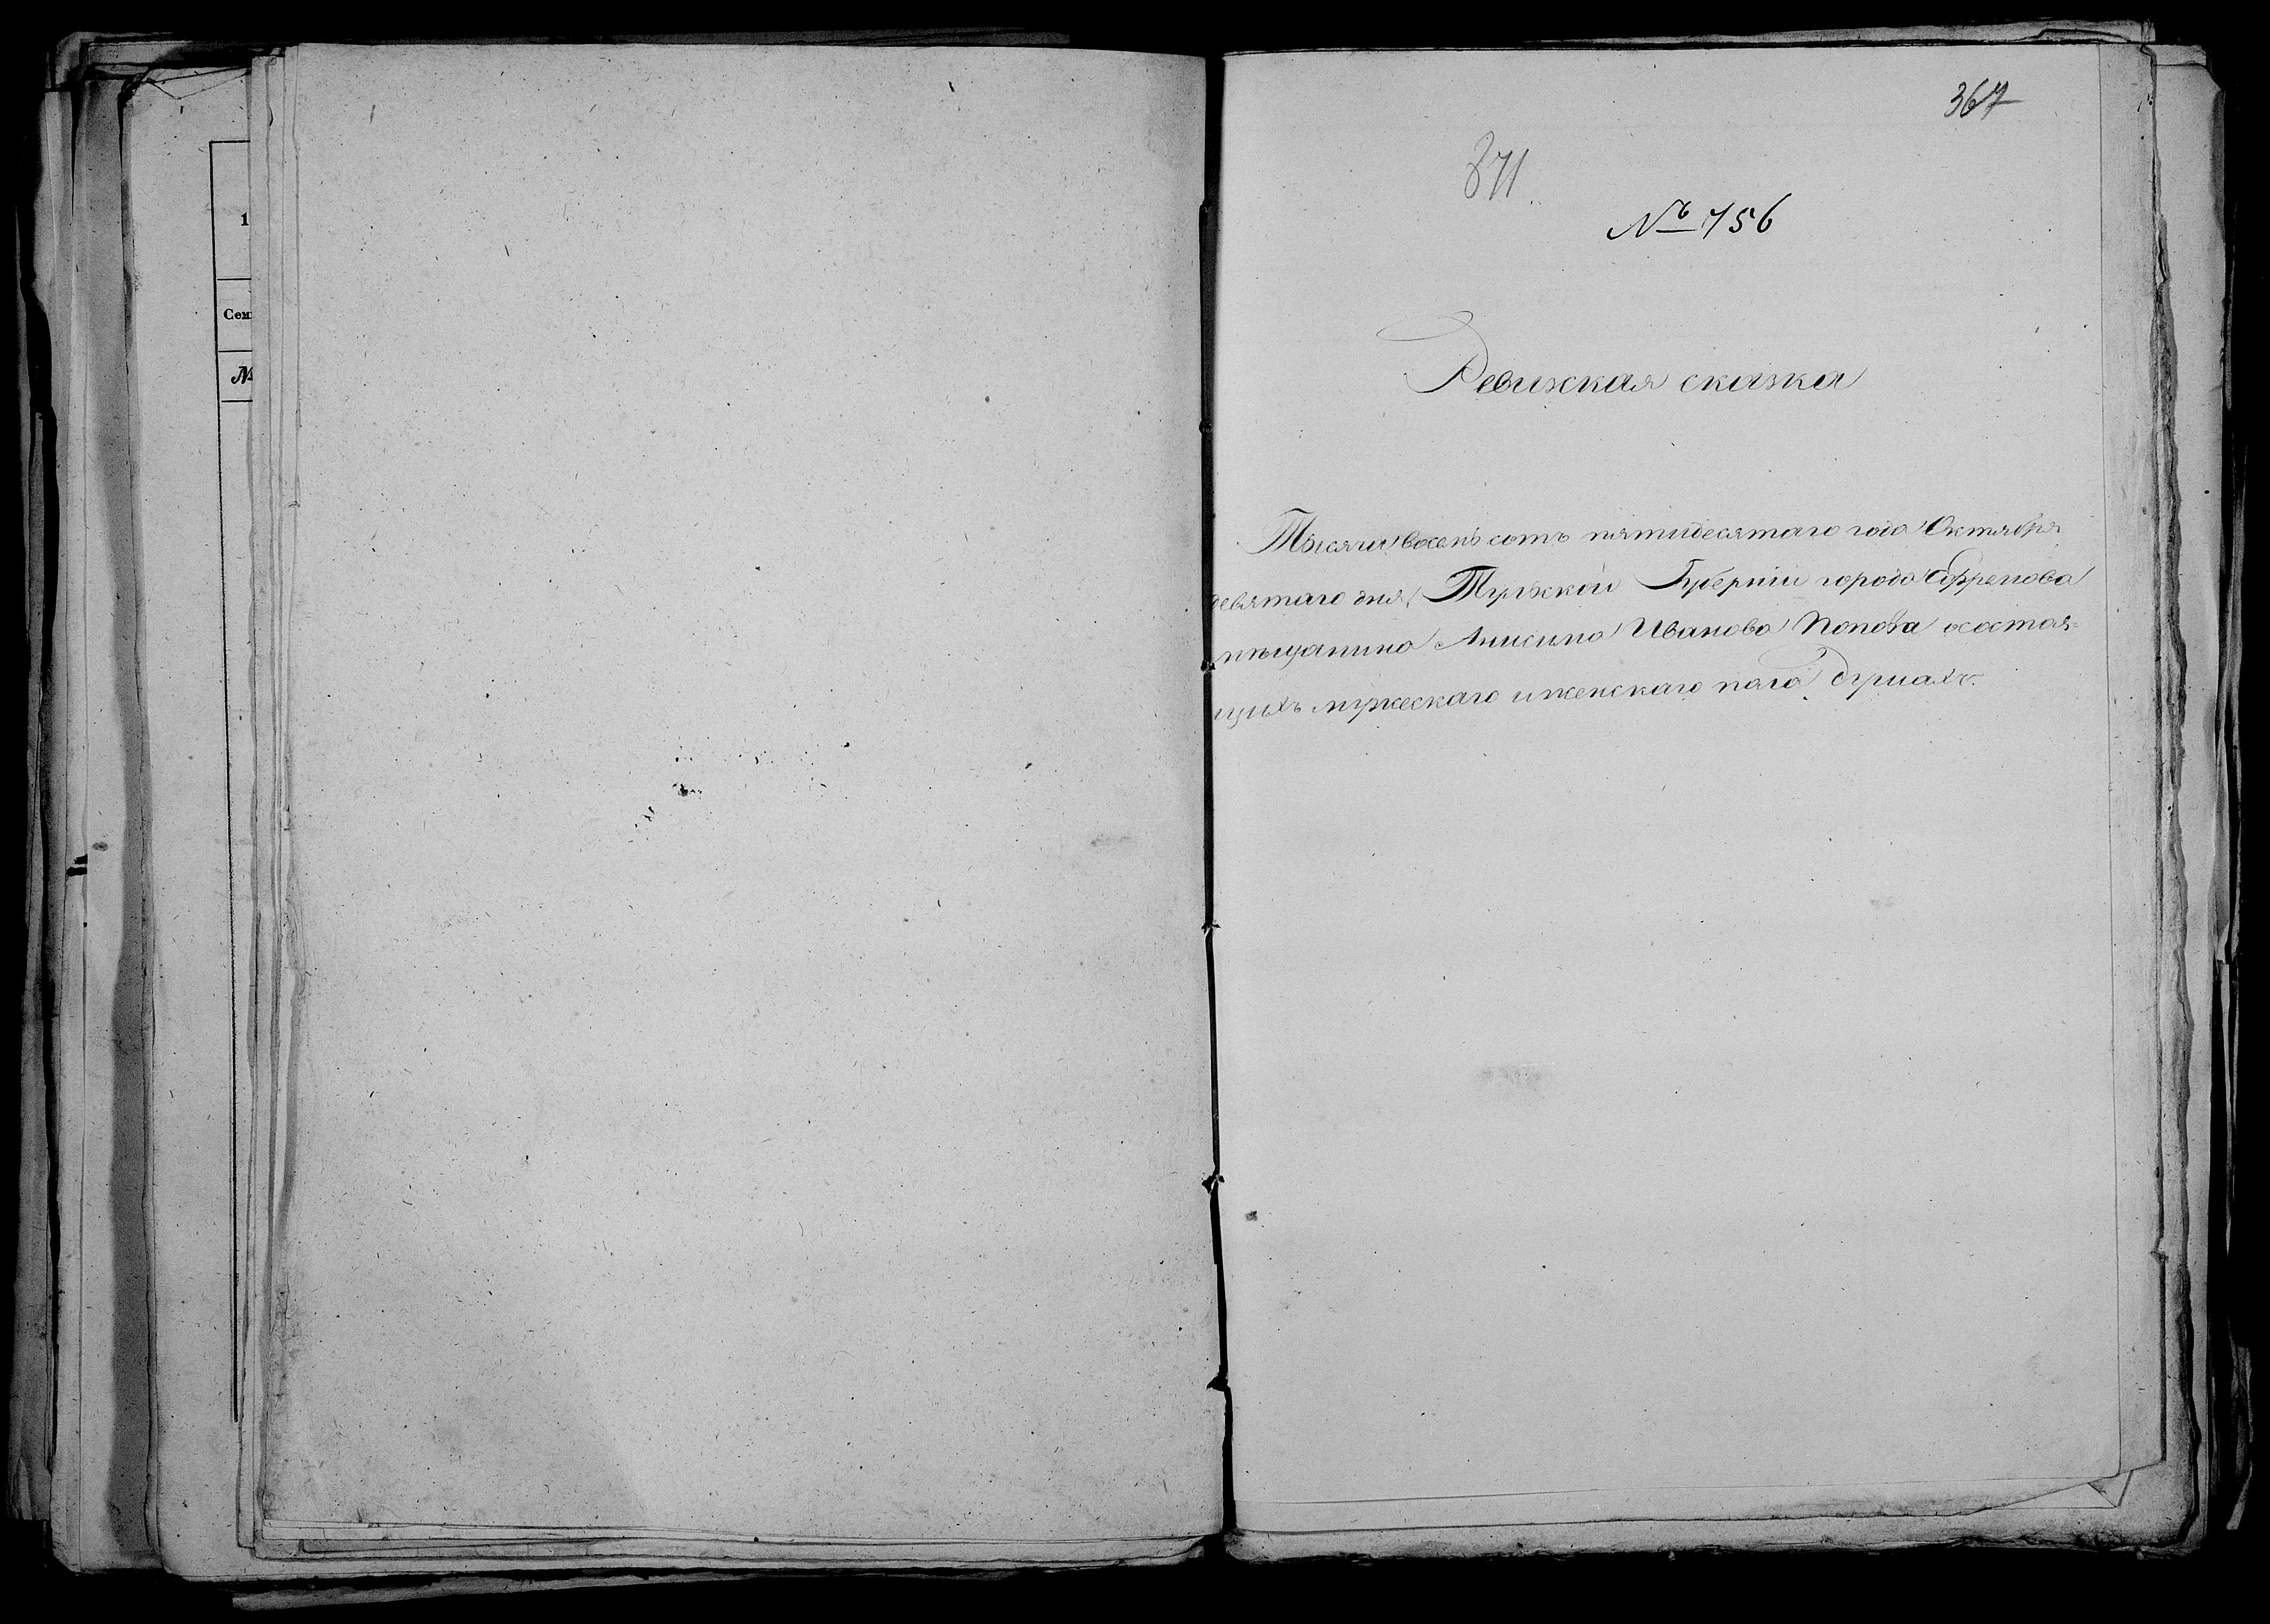 1
Сем
№
367
371
№ 756
Ревижская сказка
Тысяча восемь сотъ пятидесятаго года Октября
девятаго дня, Тульской Губерніи города Ефремова
мѣщанина Анисима Иванова Попова осостоя=
щихъ мужескаго и женскаго пола душахъ.